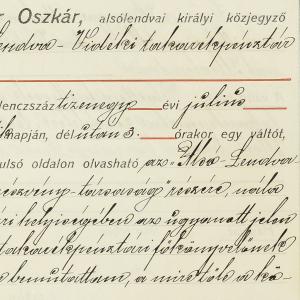 r Oszkár, alsólendvai királyi közjegyző
Lendva-Vidéki takarékpénztár
lenczszáz tizenegy évi július
ik napján, délután 3. órakor egy váltót,
ulsó oldalon olvasható az "Alsó-Lendva-
részvény-társaság" részére, nála
ri helyiségében az ugyanott jelen
takarékpénztári főkönyvelőnek
e bemutattam, a mire tőle a kö-